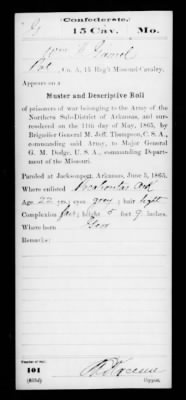 (Confederate.)
15 Cav. Mo.
Appears on a
Muster and Descriptive Roll
of prisoners of war belonging to the Army of the
Northern Sub-District of Arkansas, and sur-
rendered on the 11th day of May, 1865, by
Brigadier General M. Jeff. Thompson, C. S. A.,
commanding said Army, to Major General
G. M. Dodge, U. S. A., commanding Depart-
ment of the Missouri.
Paroled at Jacksonport, Arkansas, June 5, 1865.
Where enlisted Pocahontas Ark
Age 22 yrs; eyes gray; hair light
Complexion fair; height 5 feet 9 inches.
Where born
Remarks:
Number of roll:
101
Copyist.